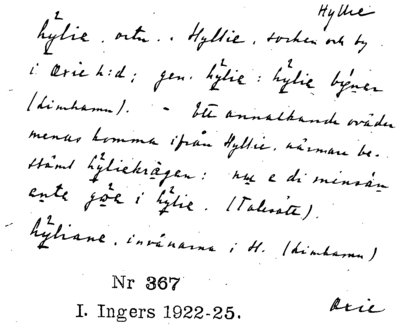 Hyllie
hýlie, ortn. . Hyllie, socken och by
i Oxie h:d; gen. hýlie: hýlie býner
(Limhamn). - Ett annalkande oväder
menas komma ifrån Hyllie, närmare be-
stämt hýliekrågen: nu e di minsán
ente goe i hýlie. (Talesätt).
hýliane, invånarna i H. (Limhamn)
Nr 367
I. Ingers 1922-25.
Oxie